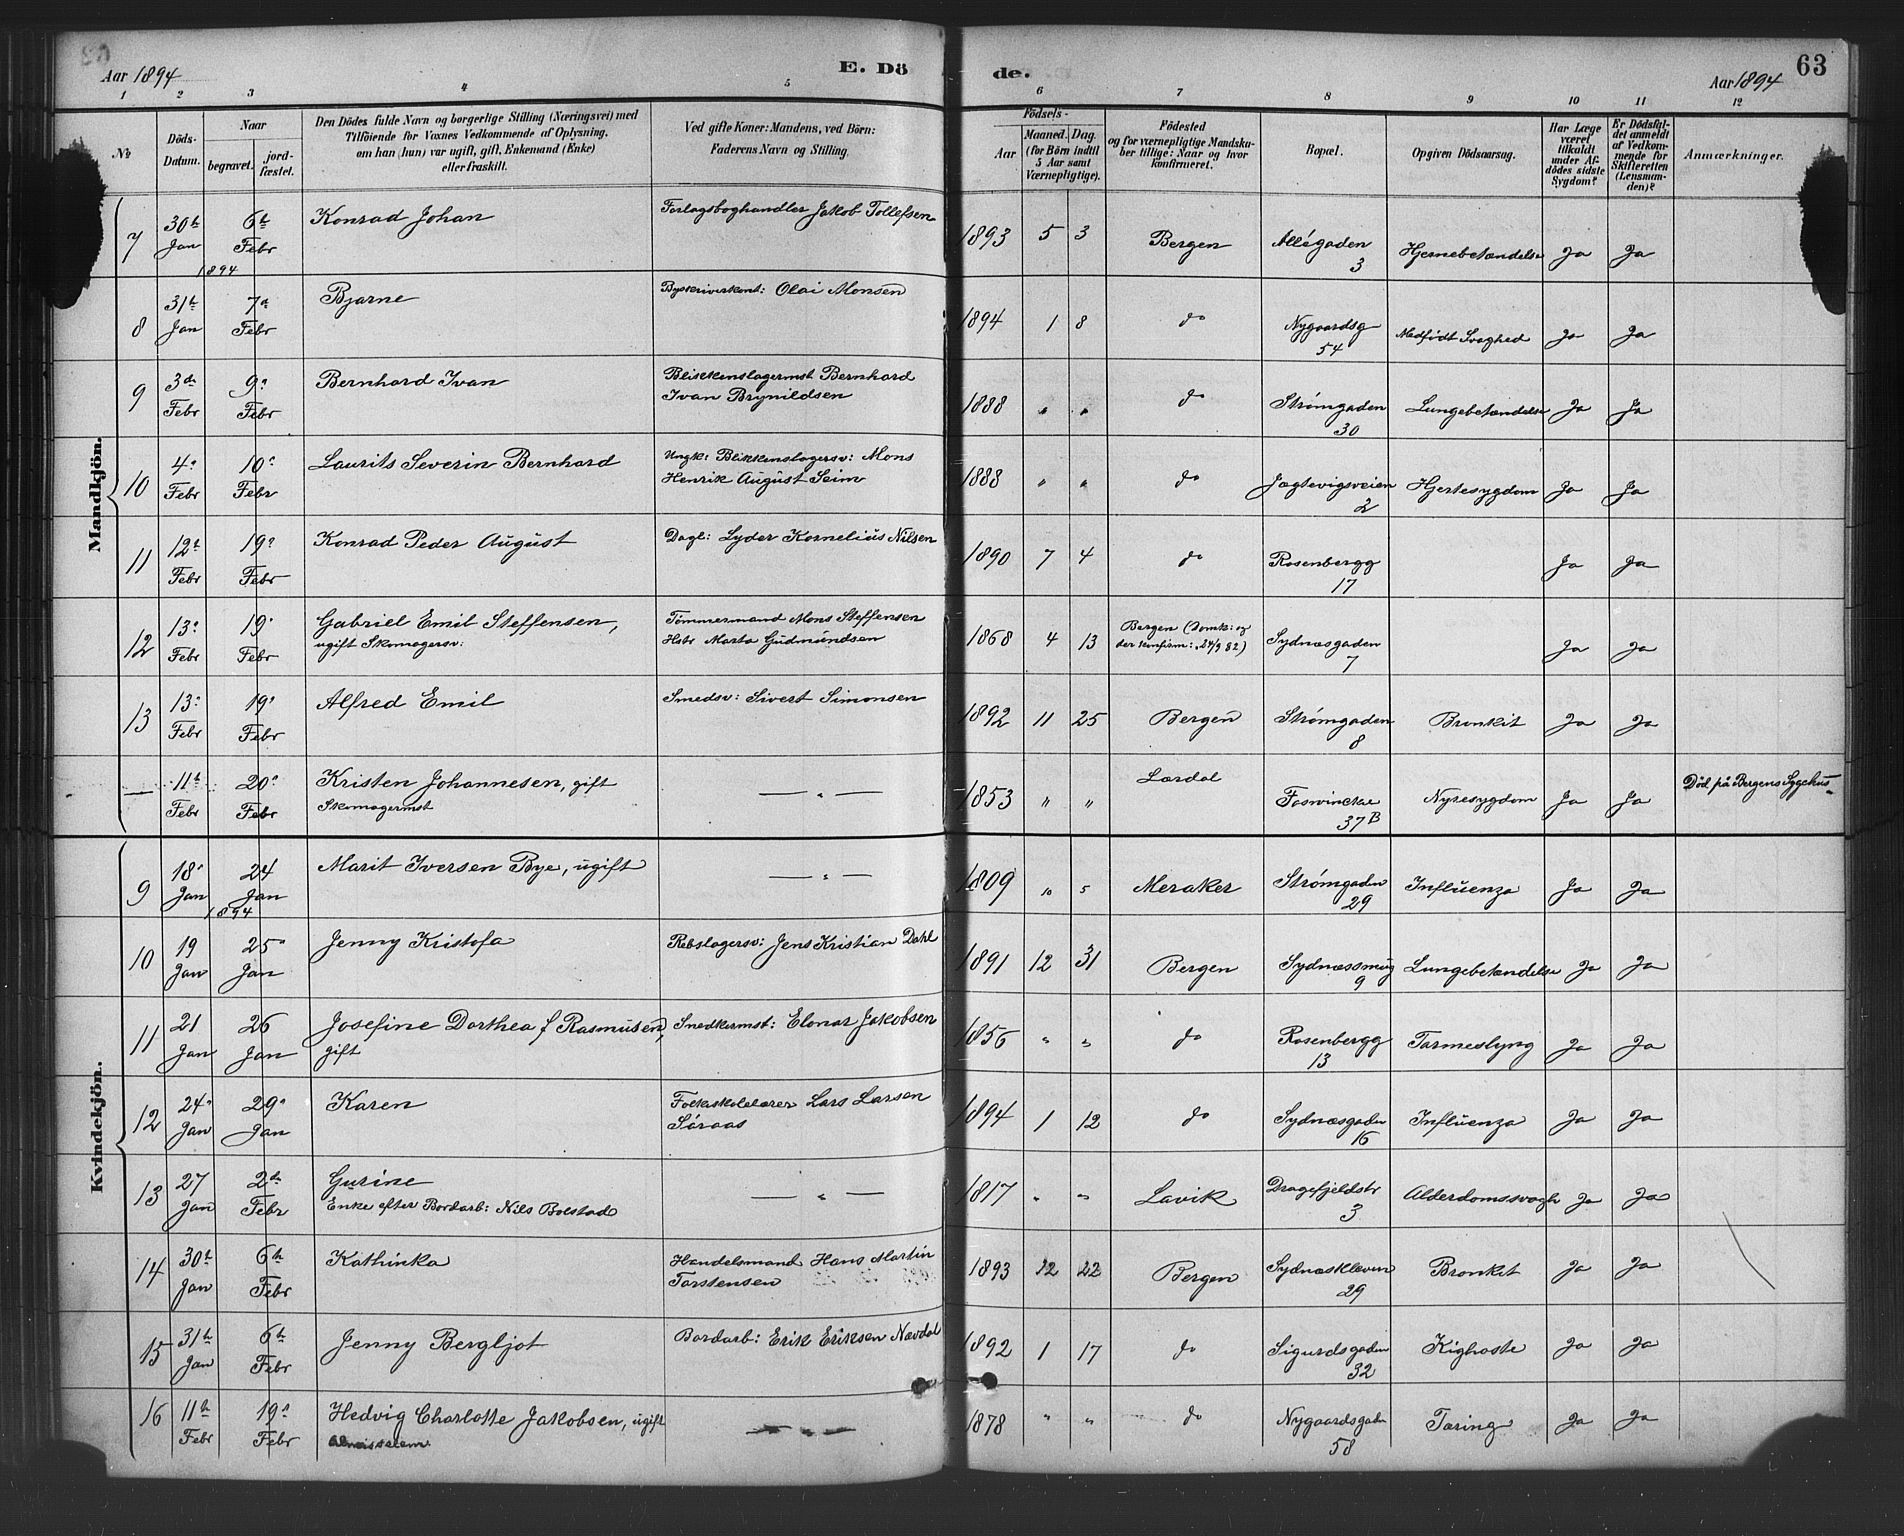 Aar 1894
E. Dö
de.
Aar 1894
63
1 2 3 4 5 6 7 8 9 10 11 12
No
Döds-Datum.
Naar
begravet. jordfæstet.
Den Dödes fulde Navn og borgerlige Stilling (Næringsvei) med
Tilföiende for Voxnes Vedkommende af Oplysning,
om han (hun) var ugift, gift, Enkemand (Enke)
eller fraskilt.
Ved gifte Koner: Mandens, ved Börn:
Faderens Navn og Stilling.
Födsels-
Aar Maaned. Dag.
(for Börn indtil
5 Aar samt
Værnepligtige).
Födested
og for værnepligtige Mandskaber tillige: Naar og hvor
konfirmeret.
Bopæl.
Opgiven Dödsaarsag.
Har Læge
været
tilkaldt
under Afdödes sidste
Sygdom?
Er Dödsfaldet anmeldt
af Vedkommende for
Skifteretten
(Lensmanden)?
Anmærkninger.
Mandkjön.
7 30te Jan 6te Febr 1894 Konrad Johan Forlagsboghandler Jakob Tollefsen 1893 5 3 Bergen Allégaden 3 Hjernebetændelse Ja Ja
8 31te Jan 7de Febr Bjarne Byskriverkont: Olai Monsen 1894 1 8 do Nygaardsg 54 Medfødt Svaghed Ja Ja
9 3de Febr 9de Febr Bernhard Ivan Blikkenslagermst Bernhard Ivan Brynildsen 1888 " " do Strømgaden 30 Lungebetændelse Ja Ja
10 4de Febr 10de Febr Laurits Severin Bernhard Ungk: Blikkenslagersv: Mons Henrik August Seim 1888 " " do Jægtevigsveien 2 Hjertesygdom Ja Ja
11 12te Febr 19de Febr Konrad Peder August Dagl: Lyder Kornelius Nilsen 1890 7 4 do Rosenbergg 17 Ja Ja
12 13de Febr 19de Febr Gabriel Emil Steffensen, ugift Skomagersv: Tømmermand Mons Steffensen Hstr Marta Gudmundsen 1868 4 13 Bergen (Domk: og der konfirm: 24/9 82) Sydnæsgaden 7 Ja Ja
13 13de Febr 19de Febr Alfred Emil Smedsv: Sivert Simonsen 1892 11 25 Bergen Strømgaden 8 Bronkit Ja Ja
— 11te Febr 20de Febr Kristen Johannesen, gift Skomagermst — " — 1853 " " Lærdal Foswincke 37 B Nyresygdom Ja Ja Død på Bergens Sygehus
Kvindekjön.
9 18de Jan 24 Jan 1894 Marit Iversen Bye, ugift — " — 1809 10 5 Meraker Strømgaden 29 Influenza Ja Ja
10 19 Jan 25de Jan Jenny Kristofa Rebslagersv: Jens Kristian Dahl 1891 12 31 Bergen Sydnæssmug 9 Lungebetændelse Ja Ja
11 21 Jan 26 Jan Josefine Dorthea f Rasmusen, gift Snedkermst: Elonar Jakobsen 1856 " " do Rosenbergg 13 Tarmeslyng Ja Ja
12 24de Jan 29de Jan Karen Folkeskolelærer Lars Larsen Søraas 1894 1 12 do Sydnæsgaden 16 Influenza Ja Ja
13 27 Jan 2den Febr Gurine Enke efter Bordarb: Nils Bolstad — " — 1817 " " Lavik Dragefjeldstr 3 Alderdomssvagh Ja Ja
14 30te Jan 6te Febr Kathinka Handelsmand Hans Martin Torstensen 1893 12 22 Bergen Sydnæskleven 29 Bronkit Ja Ja
15 31te Jan 6te Febr Jenny Bergljot Bordarb: Erik Eriksen Nævdal 1892 1 17 do Sigurdsgaden 32 Kighoste Ja Ja
16 11te Febr 19de Febr Hedvig Charlotte Jakobsen, ugift — " — 1878 " " do Nygaardsgade 58 Tæring Ja Ja